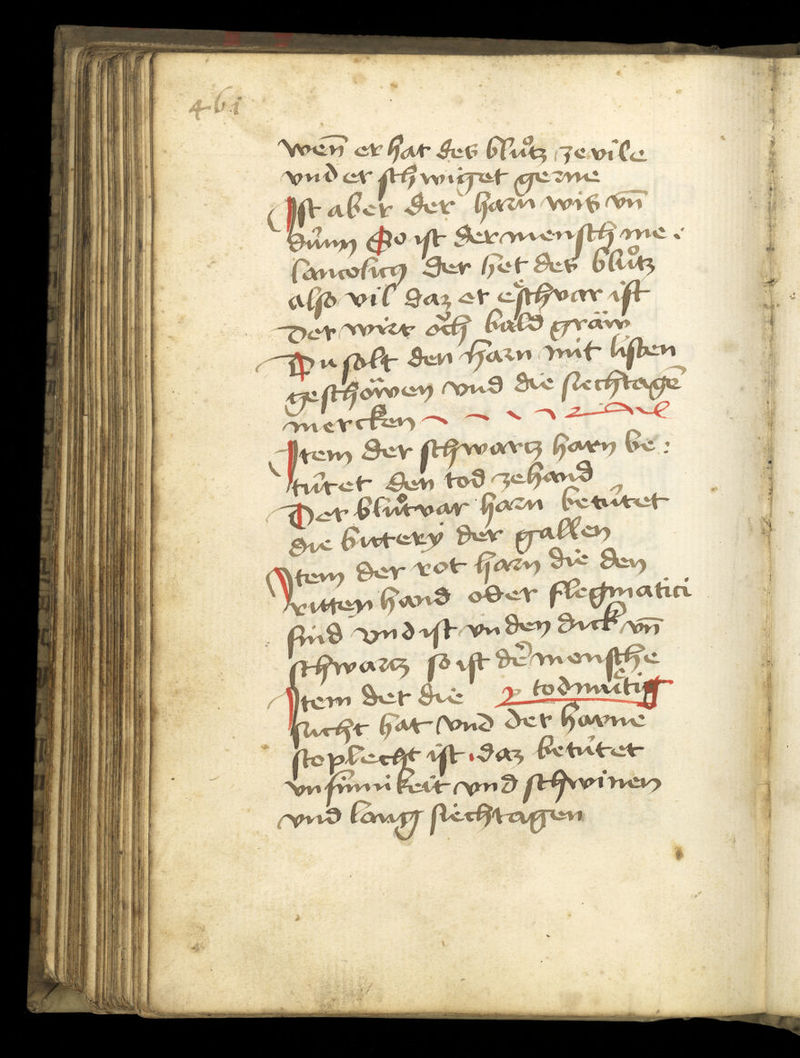 461
wen̄ er hat des blůtz ze vile
vnd er schwiget gerne
Ist aber der harn wis vn̄
dúnn So ist der mensch me⸗
lancolicꝯ der het des blůtz
also vil daz er eschvar ist
Der wirt och bald gräw
Du solt den harn mit listen
geschöwen vnd die siechtagē
mercken
Item der schwartz harn be⸗
tútet den tod zehand
Der blůtvar harn betútet
die bittery der gallen
Item der rot harn die den
ritten hand oder flegmatici
sind vnd ist vnden dick vn̄
schwartz so ist der mensche
Item der die todmůtig
sucht hat vnd der harne
stoplecht ist daz betútet
vnsinnikeit vnd schwinen
vnd lang siechtagen